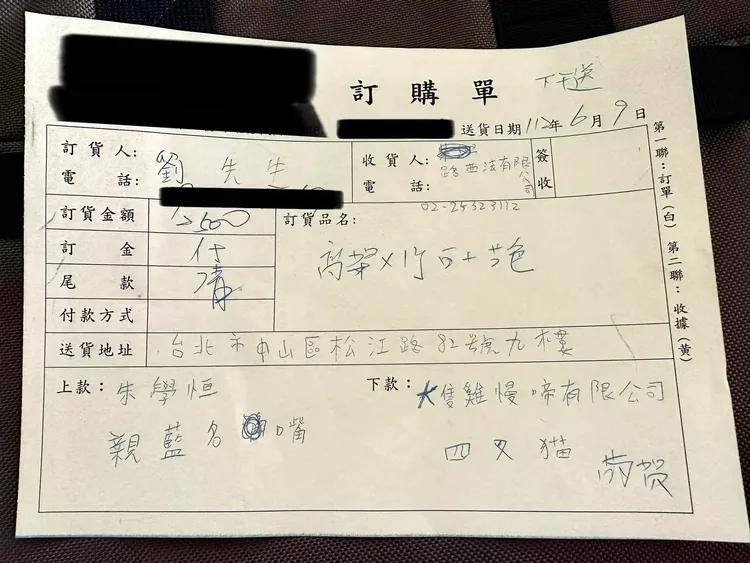 訂購單
下午送
送貨日期 112年 6月 9日
訂貨人: 劉先生
電話:
收貨人: 路西法有限公司
電話: 02-25323112
簽收
訂貨金額 2500
訂金 付
尾款 清
付款方式
訂貨品名:
高架×1 白+芋色
送貨地址 台北市中山區松江路82號九樓
上款: 朱學恒
親藍名嘴
下款: 大隻雞慢啼有限公司
四叉猫
敬賀
第一聯:訂單(白) 第二聯:收據(黃)